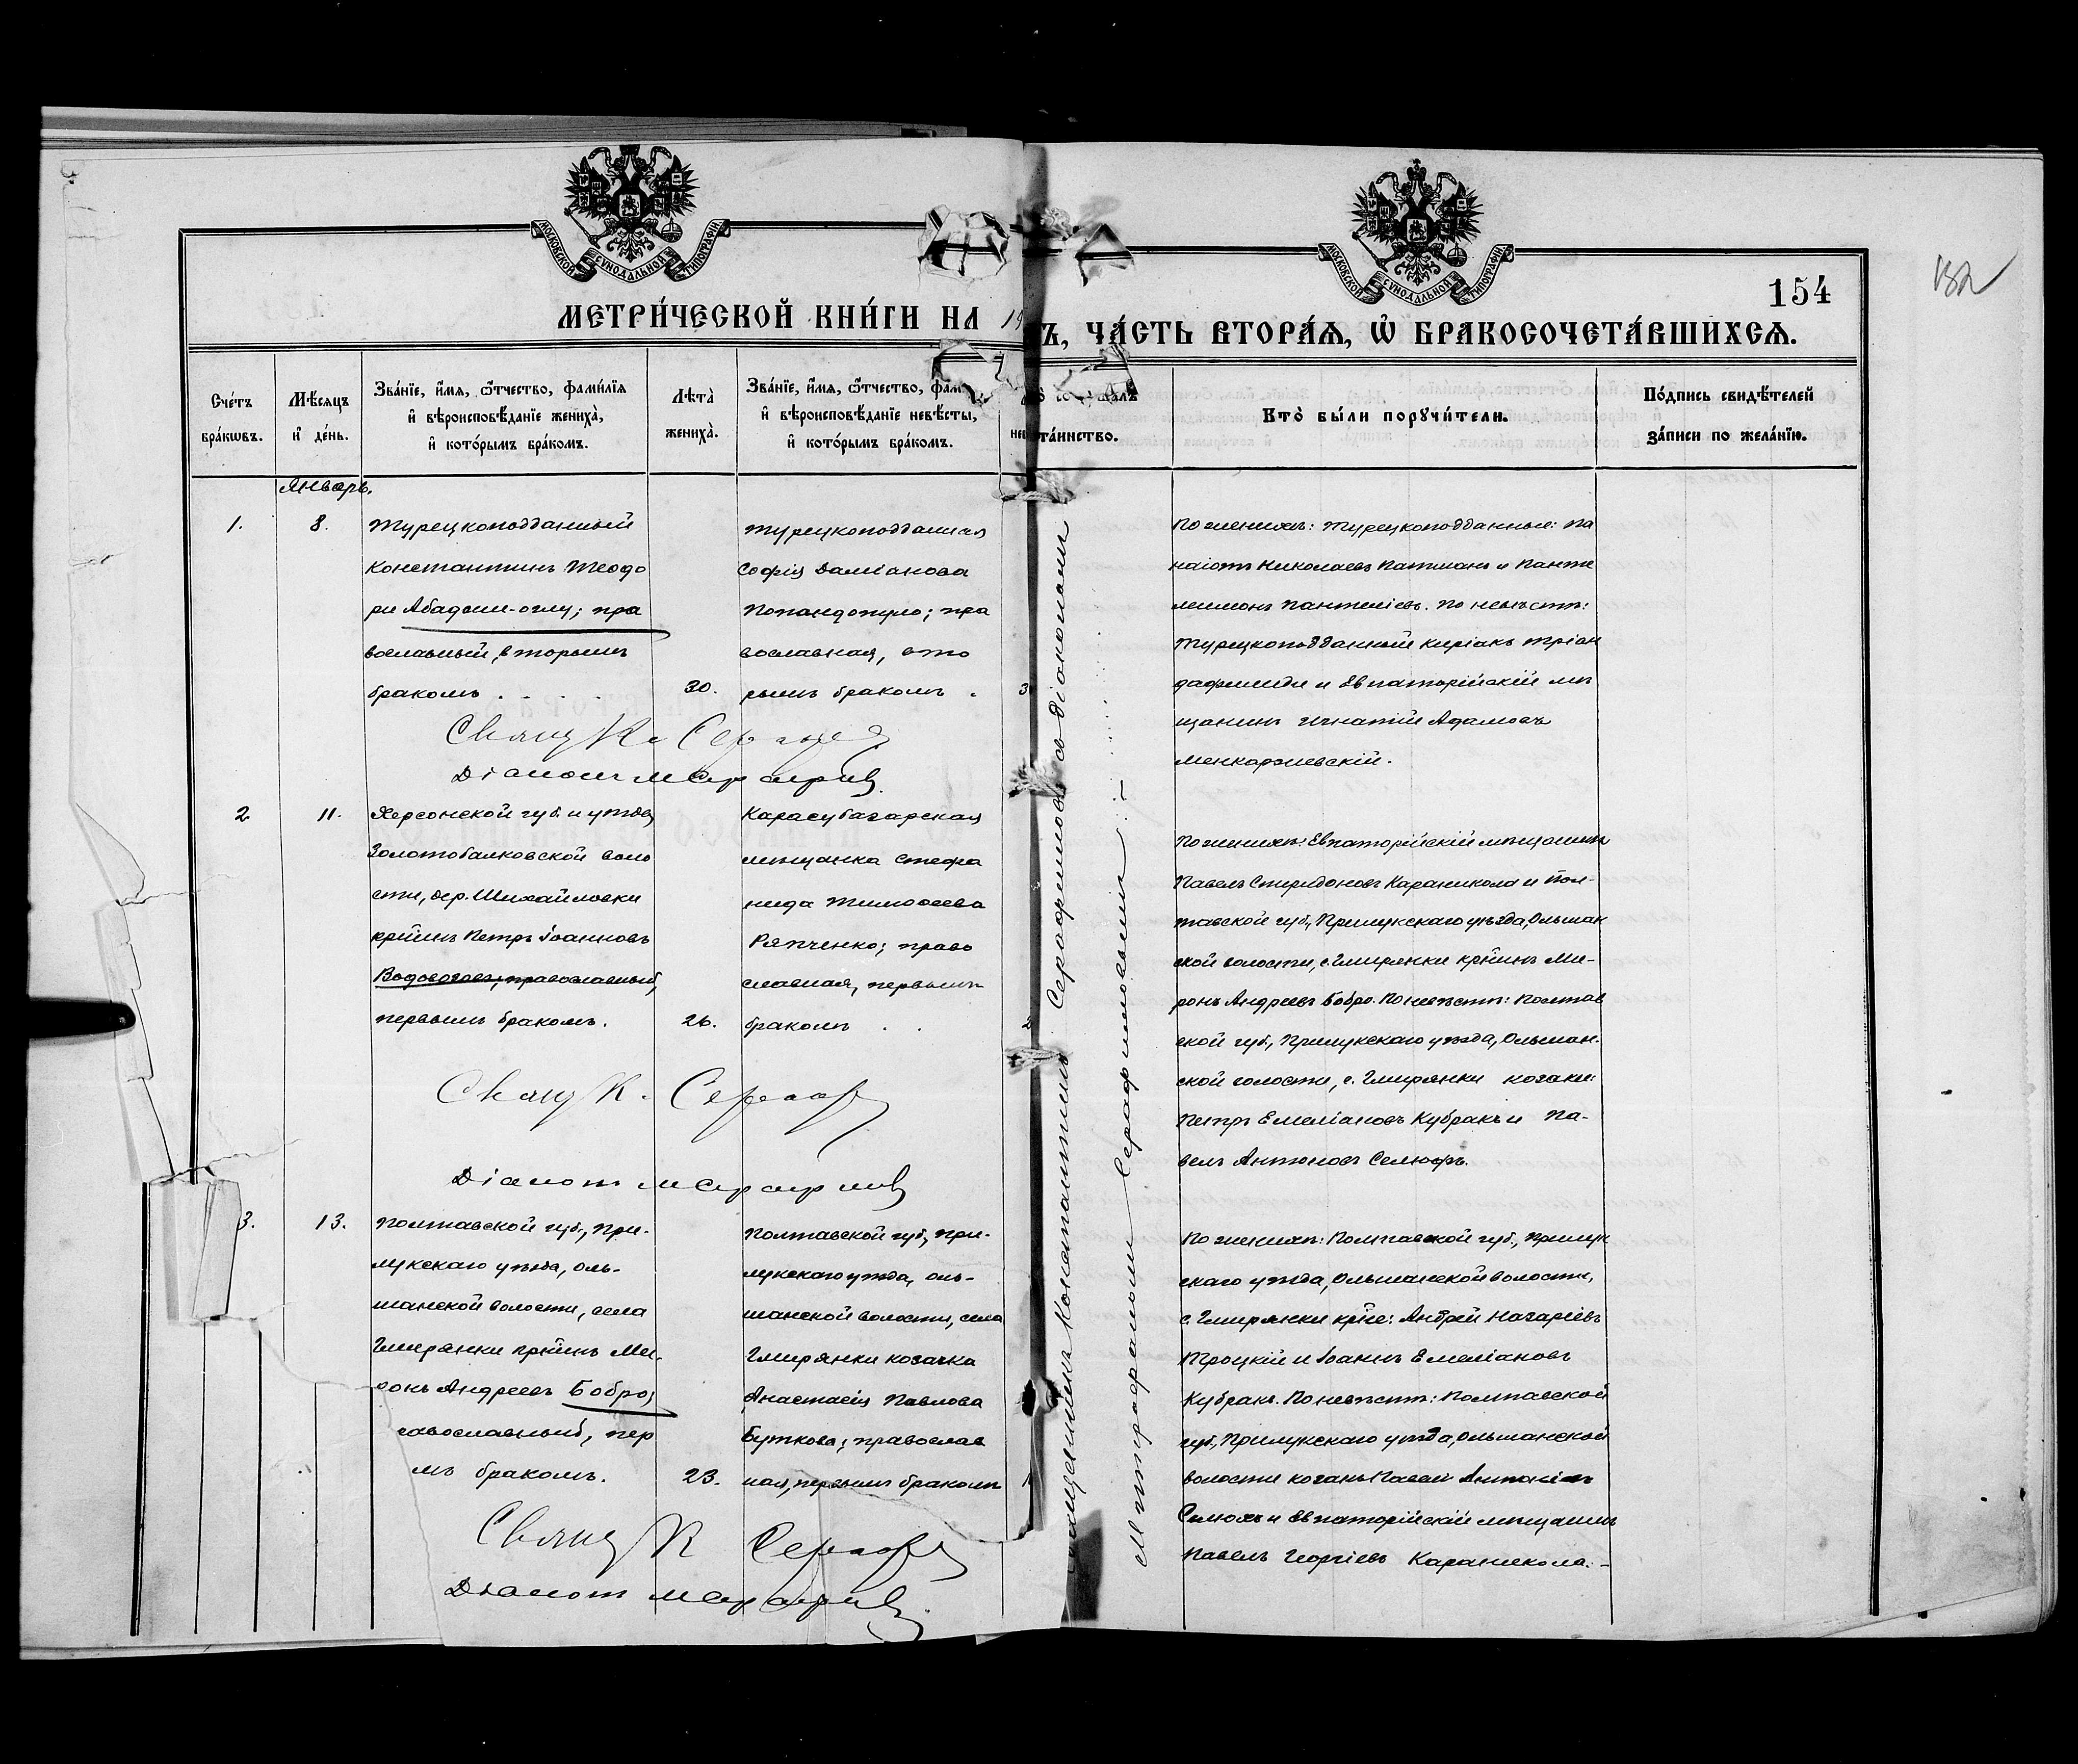 МОСКОВСКОЙ СѴНОДАЛЬНОЙ ТИПОГРАФІИ
МОСКОВСКОЙ СѴНОДАЛЬНОЙ ТИПОГРАФІИ
154
МЕТРИ́ЧЕСКОЙ КНИ́ГИ НА 19
Ъ, ЧА́СТЬ ВТОРА́Ѧ, Ѽ БРАКОСОЧЕТА́ВШИХСѦ.
Сче́тъ
бра́кѡвъ.
Мѣ́сяцъ
и҆ де́нь.
Зва́нїе, и҆́мѧ, ѻ҆́тчество, фами́лїѧ
и҆ вѣроисповѣ́данїе жениха̀,
и҆ кото́рымъ бра́комъ.
Лѣта̀
жениха̀.
Зва́нїе, и҆́мѧ, ѻ҆́тчество, фам
и҆ вѣроисповѣ́данїе невѣ́сты,
и҆ кото́рымъ бра́комъ.
нев
та́инство.
Кто̀ бы́ли порꙋчи́тели.
По́дпись свидѣ́телей
за́писи по жела́нїю.
Январь.
1.
8.
Турецкоподданный
Константинъ Теодо
ри Абаджи-оглу; пра
вославный, вторымъ
бракомъ . . . .
30.
Турецкоподданная
Софія Даміанова
Попандопуло; пра
вославная, вто
рымъ бракомъ .
3
По женихѣ: Турецкоподданные: Па
наіотъ Николаевъ Патманъ и Панте
леимонъ Пантеліевъ. По невѣстѣ:
Турецкоподданный Киріакъ Тріан
дафилиди и Евпаторійскій мѣ
щанинъ Игнатій Адамовъ
Менкаржевскій.
Свящ. К. Серафимовъ
Діаконъ Митраф
2
11.
Херсонской губ. и уѣзда,
Золотобалковской воло
сти, дер. Михайловки
кр-нинъ Петръ Іоанновъ
Водовозовъ, православный,
первымъ бракомъ.
26.
Карасубазарская
мѣщанка Стефа
нида Тимоѳеева
Ряпченко; право
славная, первымъ
бракомъ . .
2
По женихѣ: Евпаторійскій мѣщанинъ
Павелъ Спиридоновъ Караникола и Пол-
тавской губ., Прилукскаго уѣзда, Ольшан
ской волости, с. Гмирянки кр-нинъ Ми-
ронъ Андреевъ Бобро. По невѣстѣ: Полтав
ской губ., Прилукскаго уѣзда, Ольшан-
ской волости, с. Гмирянки козаки:
Петръ Емеліановъ Кубракъ и Па-
велъ Антоновъ Селюхъ.
Свящ. К. Сераф
Діаконъ
3.
13.
Полтавской губ., При-
лукскаго уѣзда, Оль-
шанской волости, села
Гмирянки кр-нинъ Ми-
ронъ Андреевъ Бобро,
равославный, пер
мъ бракомъ.
23.
Полтавской губ., При-
лукскаго уѣзда, Оль-
шанской волости, села
Гмирянки козачка
Анастасія Павлова
Буткова; православ
ная, первымъ бракомъ
1
По женихѣ: Полтавской губ., Прилук
скаго уѣзда, Ольшанской волости,
с. Гмирянки кр-не: Андрей Назаріевъ
Троцкій и Іоаннъ Емеліановъ
Кубракъ. По невѣстѣ: Полтавской
губ., Прилукскаго уѣзда, Ольшанской
волости козакъ Павелъ Антоніевъ
Селюхъ и Евпаторійскій мѣщанинъ
Павелъ Георгіевъ Караникола.-
Свящ К Сераф
Діаконъ
Священникъ Константинъ Серафимовъ съ діакономъ
Митрофаномъ Серафимовымъ :-